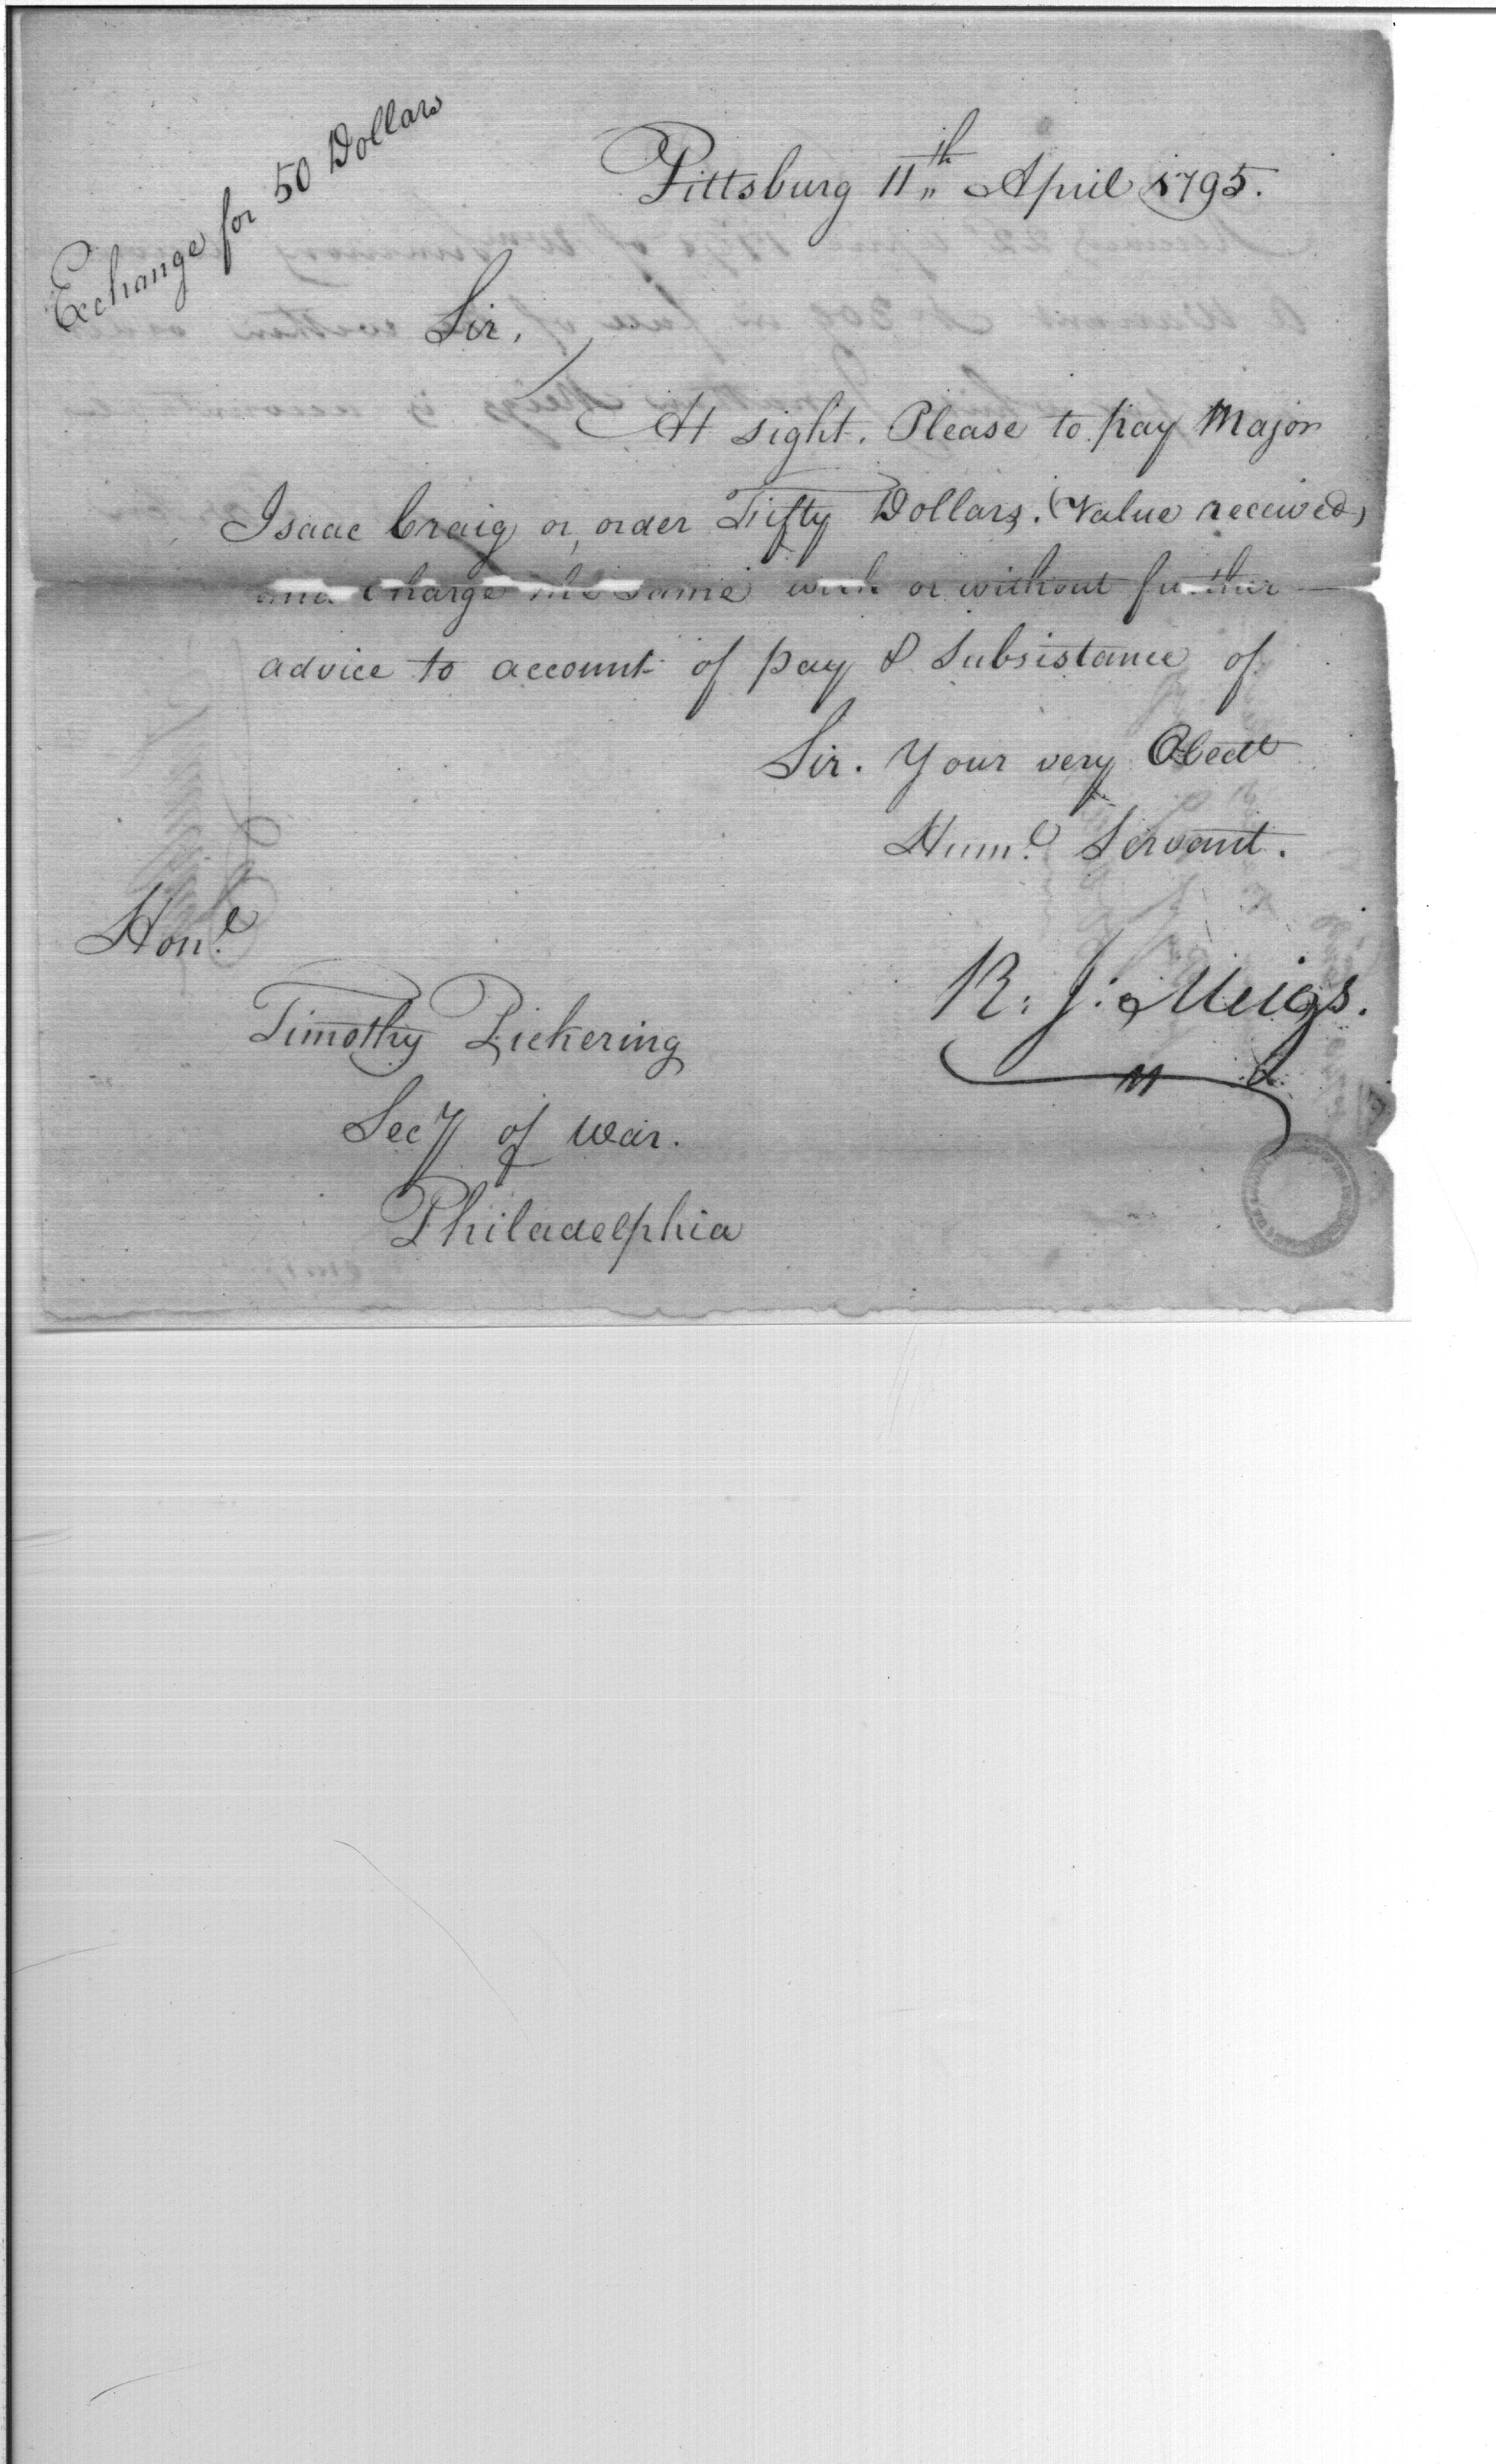 Exchange for 50 Dollars
Pittsburg 11th April 1795.
Sir,
At sight. Please to pay Major
Isaac Craig or order Fifty Dollars. (Value received)
and charge the same with or without further
advice to account of pay & Subsistance of
Sir. Your very Obedt
Humle Servant.
R: J: Meigs.
Honle
Timothy Pickering
Secy of War.
Philadelphia